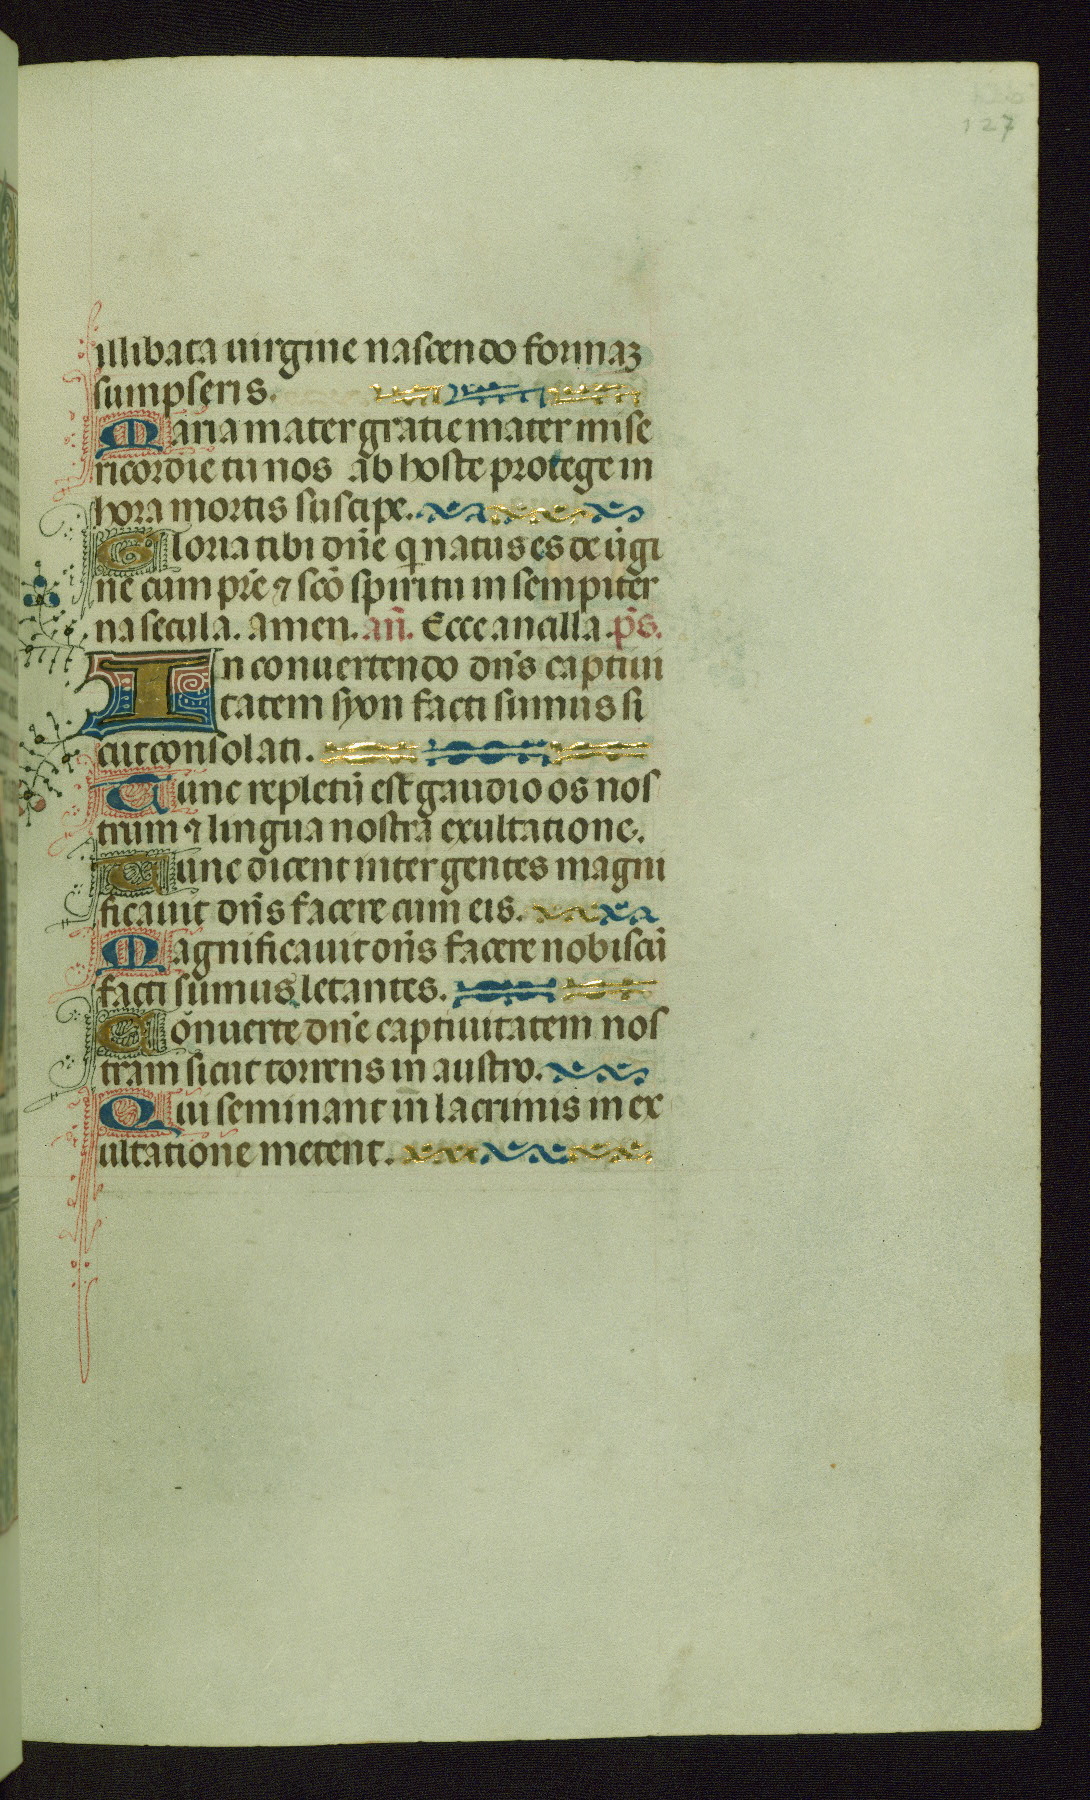 127
illibata uirgine nascendo formaȝ
sumpseris.
Maria mater gratie mater mise
ricordie tu nos ab hoste protege in
hora mortis suscipe.
Gloria tibi dn̄e q̄ natus es de ūgi
ne cum pr̄e ⁊ sc̄o spiritu in sempiter
na secula. Amen. an̄. Ecce ancilla. p̄s.
In conuertendo dn̄s captiui
tatem syon facti sumus si
cut consolati.
Tunc repletū est gaudio os nos
trum ⁊ lingua nostra exultatione.
Tunc dicent inter gentes magni
ficauit dn̄s facere cum eis.
Magnificauit dn̄s facere nobiscū
facti sumus letantes.
Conuerte dn̄e captiuitatem nos
tram sicut torrens in austro.
Qui seminant in lacrimis in ex
ultatione metent.